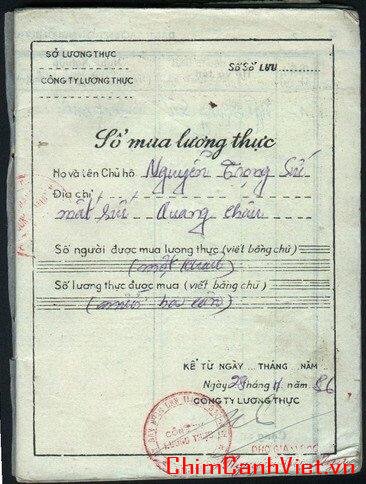 SỞ LƯƠNG THỰC
Số Sổ LƯU ............
CÔNG TY LƯƠNG THỰC
Sổ mua lương thực
Họ và tên Chủ hộ Nguyễn Trọng
Địa chỉ
Quang
Số người được mua lương thực (viết bằng chữ)
(một
Số lương thực được mua (viết bằng chữ)
(mười ba cân)
KỂ TỪ NGÀY ... THÁNG ... NĂM ...
Ngày 29 tháng 11 năm 86
CÔNG TY LƯƠNG THỰC
CÔNG TY
LƯƠNG THỰC
PHÓ GIÁM ĐỐC
ChimCanhViet.vn